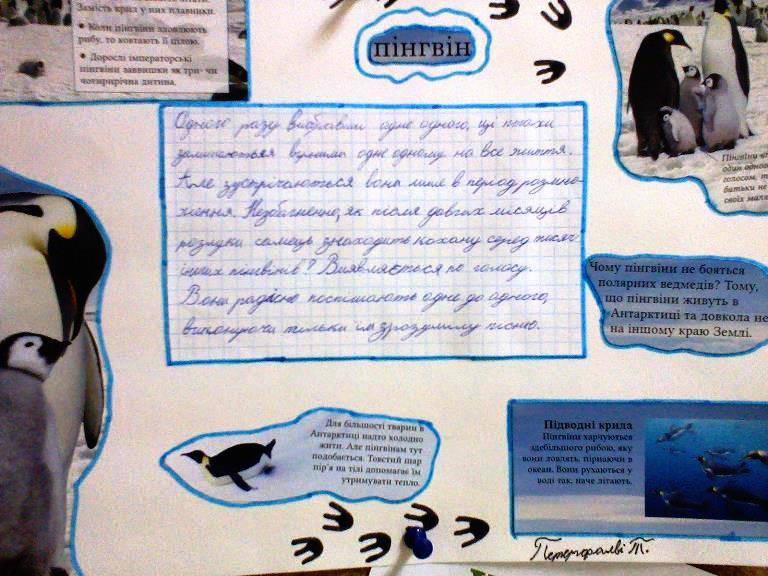 Замість крил у них плавники.
• Коли пінгвіни зловлюють
рибу, то ковтають її цілою.
• Дорослі імператорські
пінгвіни заввишки як три- чи
чотирирічна дитина.
пінгвін
Одного разу вибравши одне одного, ці птахи
залишаються вірними одне одному на все життя.
Але зустрічаються вони лише в період розмно-
ження. Незбагненно, як після довгих місяців
розлуки самець знаходить кохану серед тисяч
інших пінгвінів? Виявляється по голосу.
Вони радісно поспішають одне до одного,
виконуючи тільки їм зрозумілу пісню.
Пінгвіни
один одного
голосом,
батьки не
своїх
Чому пінгвіни не бояться
полярних ведмедів? Тому,
що пінгвіни живуть в
Антарктиці та довкола не
на іншому краю Землі.
Для більшості тварин в
Антарктиці надто холодно
жити. Але пінгвінам тут
подобається. Товстий шар
пір'я на тілі допомагає їм
утримувати тепло.
Підводні крила
Пінгвіни харчуються
здебільшого рибою, яку
вони ловлять, пірнаючи в
океан. Вони рухаються у
воді так, наче літають.
Т.